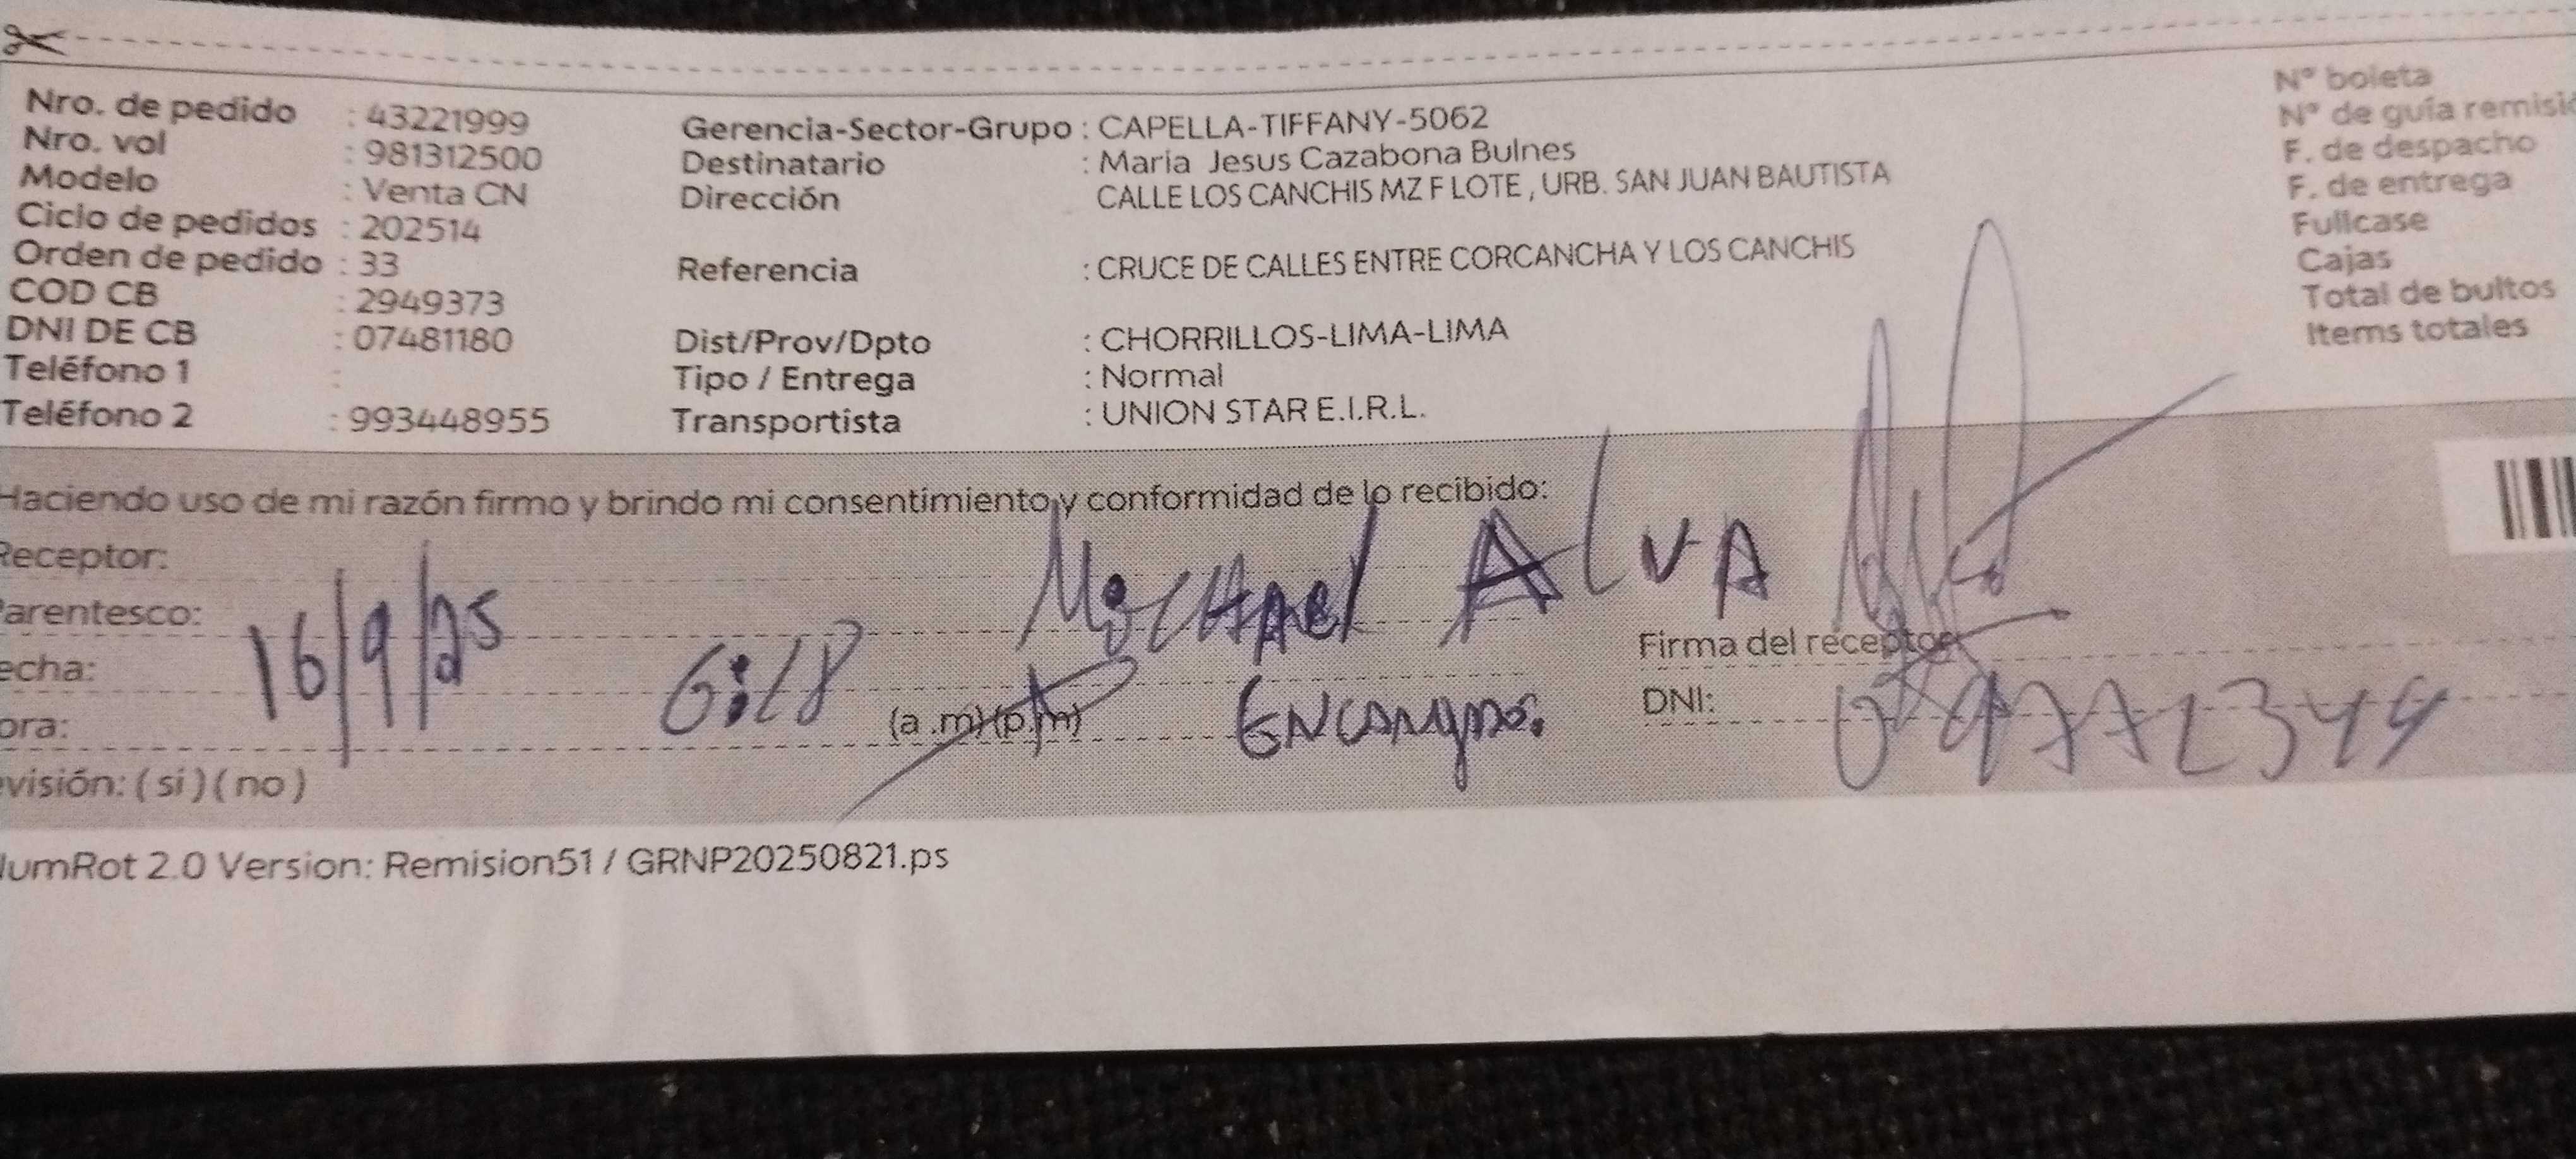 Nro. de pedido : 43221999
Nro. vol : 981312500
Modelo : Venta CN
Ciclo de pedidos : 202514
Orden de pedido : 33
COD CB : 2949373
DNI DE CB : 07481180
Teléfono 1 :
Teléfono 2 : 993448955
Gerencia-Sector-Grupo : CAPELLA-TIFFANY-5062
Destinatario : Maria Jesus Cazabona Bulnes
Dirección CALLE LOS CANCHIS MZ F LOTE , URB. SAN JUAN BAUTISTA
Referencia : CRUCE DE CALLES ENTRE CORCANCHA Y LOS CANCHIS
Dist/Prov/Dpto : CHORRILLOS-LIMA-LIMA
Tipo / Entrega : Normal
Transportista : UNION STAR E.I.R.L.
N° boleta
N° de guía remisió
F. de despacho
F. de entrega
Fullcase
Cajas
Total de bultos
Items totales
Haciendo uso de mi razón firmo y brindo mi consentimiento y conformidad de lo recibido:
Receptor:
arentesco:
echa: 16/9/25
ora: (a .m) (p.m)
evisión: ( si ) ( no )
Michael Alva
Firma del receptor
DNI:
umRot 2.0 Version: Remision51 / GRNP20250821.ps